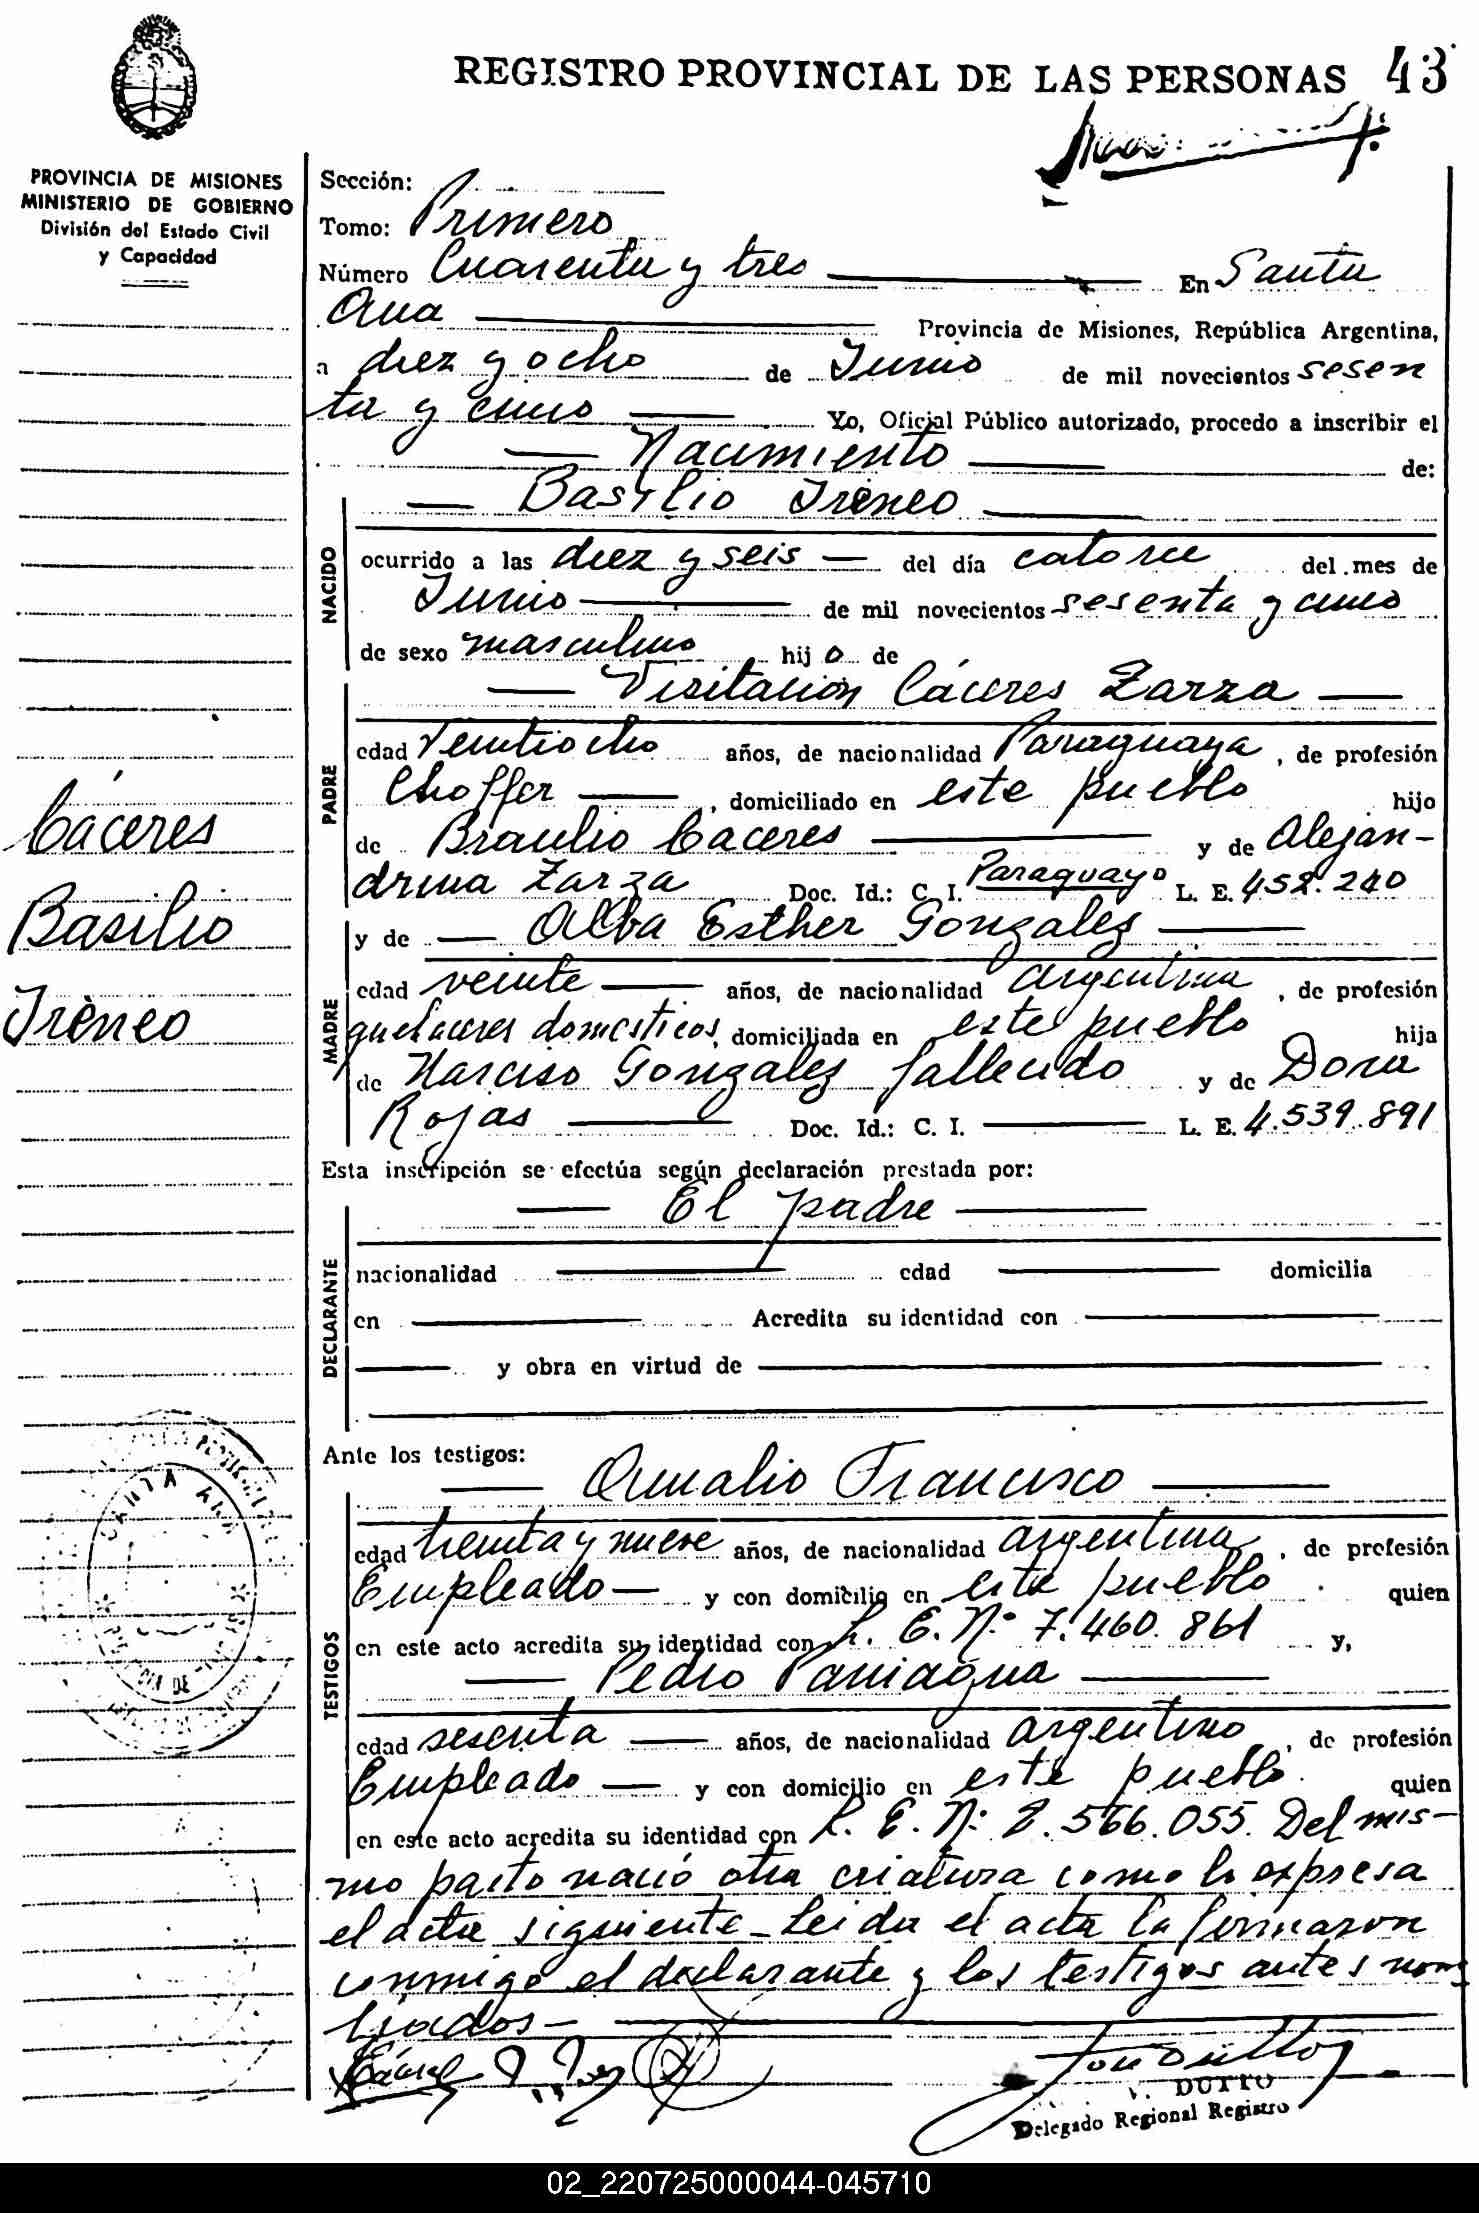 REGISTRO PROVINCIAL DE LAS PERSONAS 43
PROVINCIA DE MISIONES
MINISTERIO DE GOBIERNO
División del Estado Civil
y Capacidad
Sección:
Tomo: Primero
Número Cuarenta y tres En Santa
Ana Provincia de Misiones, República Argentina,
a diez y ocho de Junio de mil novecientos sesen
ta y cinco Yo, Oficial Público autorizado, procedo a inscribir el
Nacimiento de:
Basilio Irèneo
NACIDO
ocurrido a las diez y seis del día catorce del mes de
Junio de mil novecientos sesenta y cinco
de sexo masculino hijo de
Visitación Cáceres Zarza
PADRE
edad Veintiocho años, de nacionalidad Paraguaya, de profesión
Choffer, domiciliado en este pueblo hijo
de Braulio Caceres y de Alejan-
drina Zarza Doc. Id.: C. I. Paraguayo L. E. 452.240
y de Alba Esther Gonzalez
MADRE
edad veinte años, de nacionalidad argentina, de profesión
quehaceres domesticos, domiciliada en este pueblo hija
de Narciso Gonzalez fallecido y de Dora
Rojas Doc. Id.: C. I. L. E. 4.539.891
Esta inscripción se efectúa según declaración prestada por:
El padre
DECLARANTE
nacionalidad edad domicilia
en Acredita su identidad con
y obra en virtud de
Ante los testigos:
Francisco
TESTIGOS
edad treinta y nueve años, de nacionalidad argentina, de profesión
Empleado y con domicilio en este pueblo quien
en este acto acredita su identidad con L. E. Nº 7.460.861 y,
Pedro Paniagua
edad sesenta años, de nacionalidad argentino, de profesión
Empleado y con domicilio en este pueblo quien
en este acto acredita su identidad con L. E. Nº 2.566.055. Del mis-
mo parto nació otra criatura como lo expresa
el acta siguiente - Leida el acta la firmaron
conmigo el declarante y los testigos antes nom
brados -
Cáceres
Basilio
Irèneo
SANTA ANA
DUTTO
Delegado Regional Registro
02_220725000044-045710